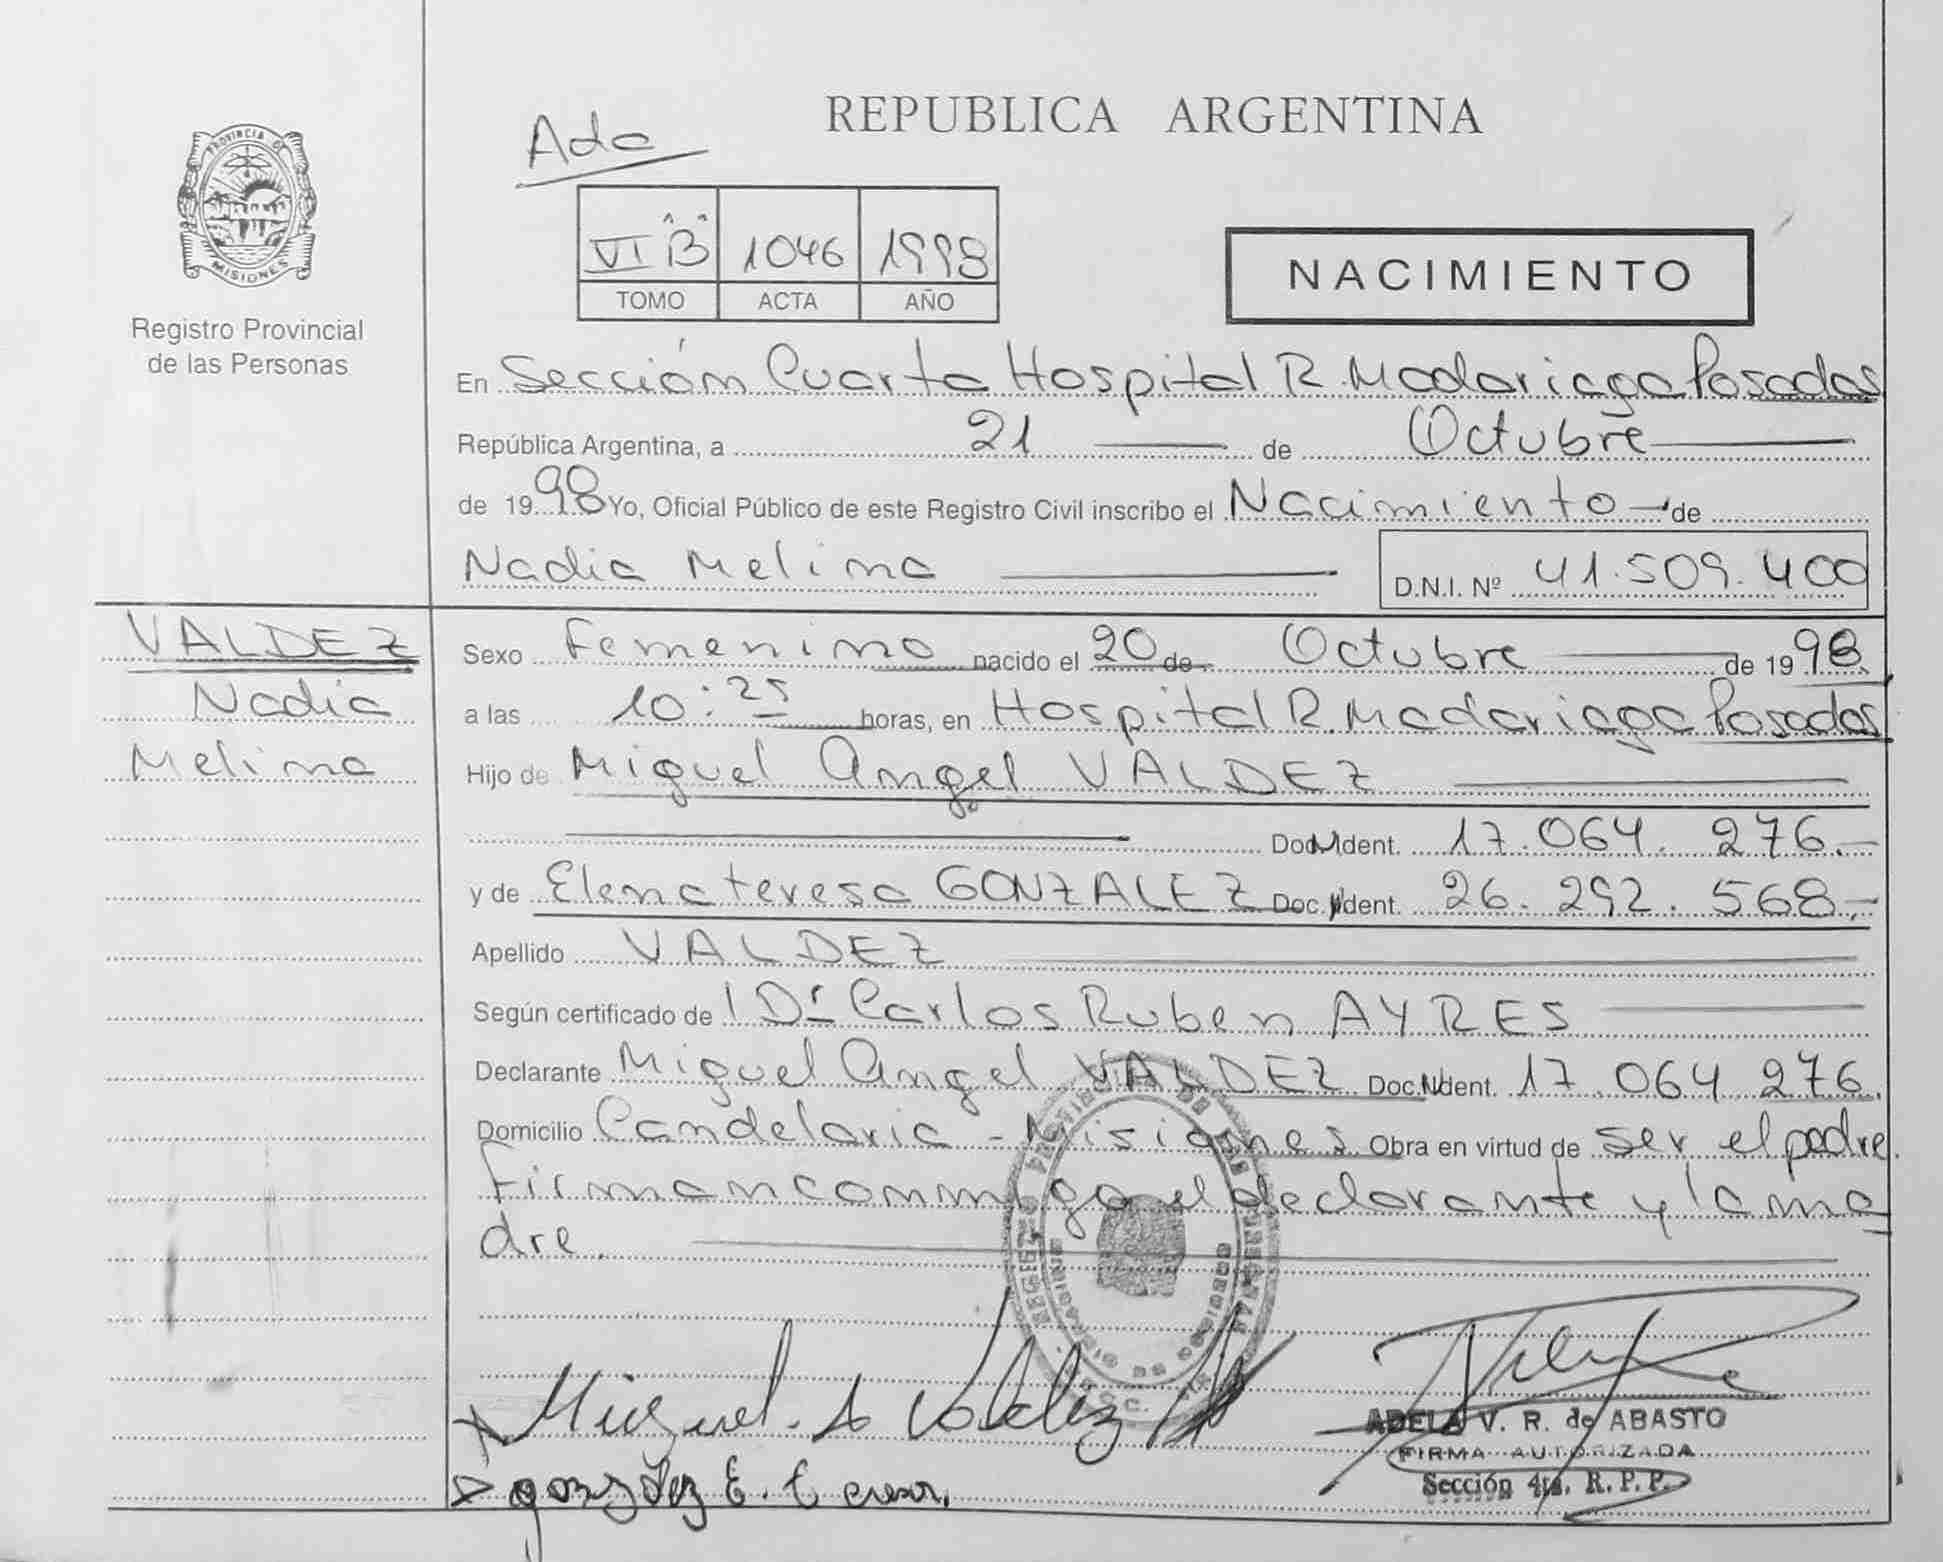 REPUBLICA ARGENTINA
PROVINCIA DE
MISIONES
Registro Provincial
de las Personas
VI "B" 1046 1998
TOMO ACTA AÑO
NACIMIENTO
En Sección Cuarta Hospital R. Madariaga Posadas
República Argentina, a 21 de Octubre
de 1998 Yo, Oficial Público de este Registro Civil inscribo el Nacimiento de
Nadia Melina D.N.I. Nº 41.509.400
VALDEZ
Nadia
Melina
Sexo Femenino nacido el 20 de Octubre de 1998.
a las 10:25 horas, en Hospital R. Madariaga Posadas
Hijo de Miguel Angel VALDEZ
Doc. Ident. 17.064.276.-
y de Elena teresa GONZALEZ Doc. Ident. 26.292.568.-
Apellido VALDEZ
Según certificado de Dr Carlos Ruben AYRES
Declarante Miguel Angel VALDEZ Doc. Ident. 17.064 276.
Domicilio Candelaria - Misiones Obra en virtud de ser el padre.
Firman conmigo el declarante y la ma
dre.
Miguel A Valdez
gonzález E.
ADELA V. R. de ABASTO
FIRMA AUTORIZADA
Sección 4ta. R. P. P.